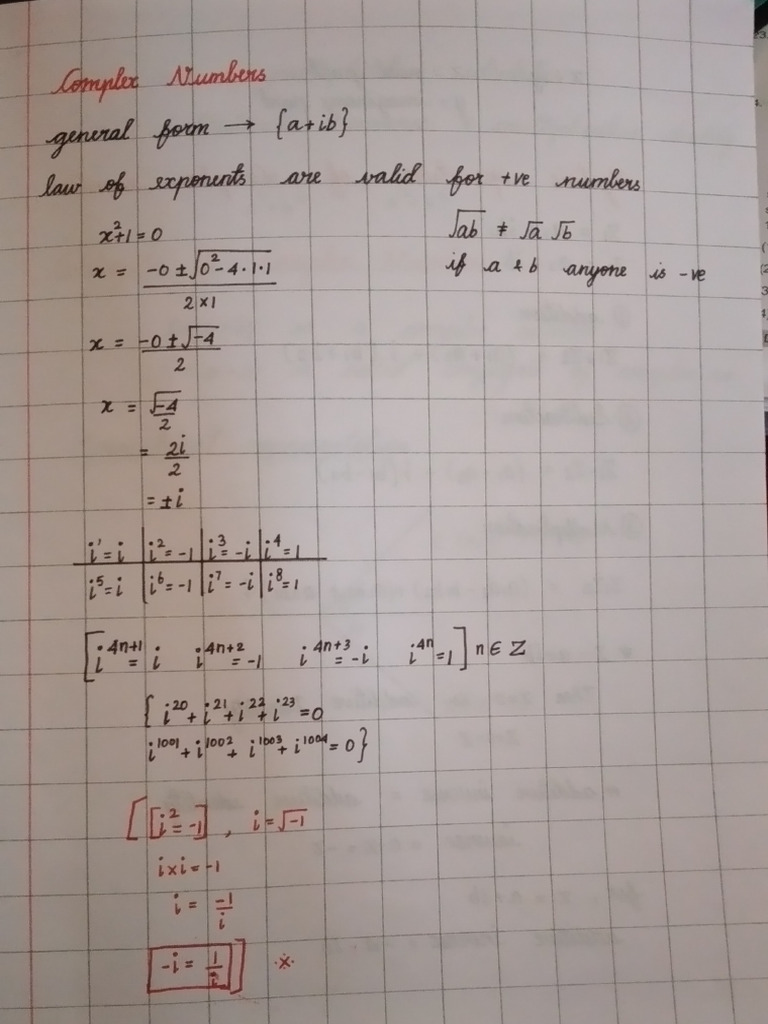 Complex Numbers
general form → {a+ib}
law of exponents are valid for +ve numbers
x²+1=0
x = (-0 ± √(0²-4·1·1)) / (2×1)
x = (-0 ± √-4) / 2
x = √-4 / 2
= 2i / 2
= ±i
√ab ≠ √a √b
if a & b anyone is -ve
i¹=i | i²=-1 | i³=-i | i⁴=1
i⁵=i | i⁶=-1 | i⁷=-i | i⁸=1
[i⁴ⁿ⁺¹ = i i⁴ⁿ⁺² = -1 i⁴ⁿ⁺³ = -i i⁴ⁿ = 1] n ∈ Z
{i²⁰ + i²¹ + i²² + i²³ = 0
i¹⁰⁰¹ + i¹⁰⁰² + i¹⁰⁰³ + i¹⁰⁰⁴ = 0}
[[i² = -1], i = √-1
i×i = -1
i = -1/i
-i = 1/i] ※